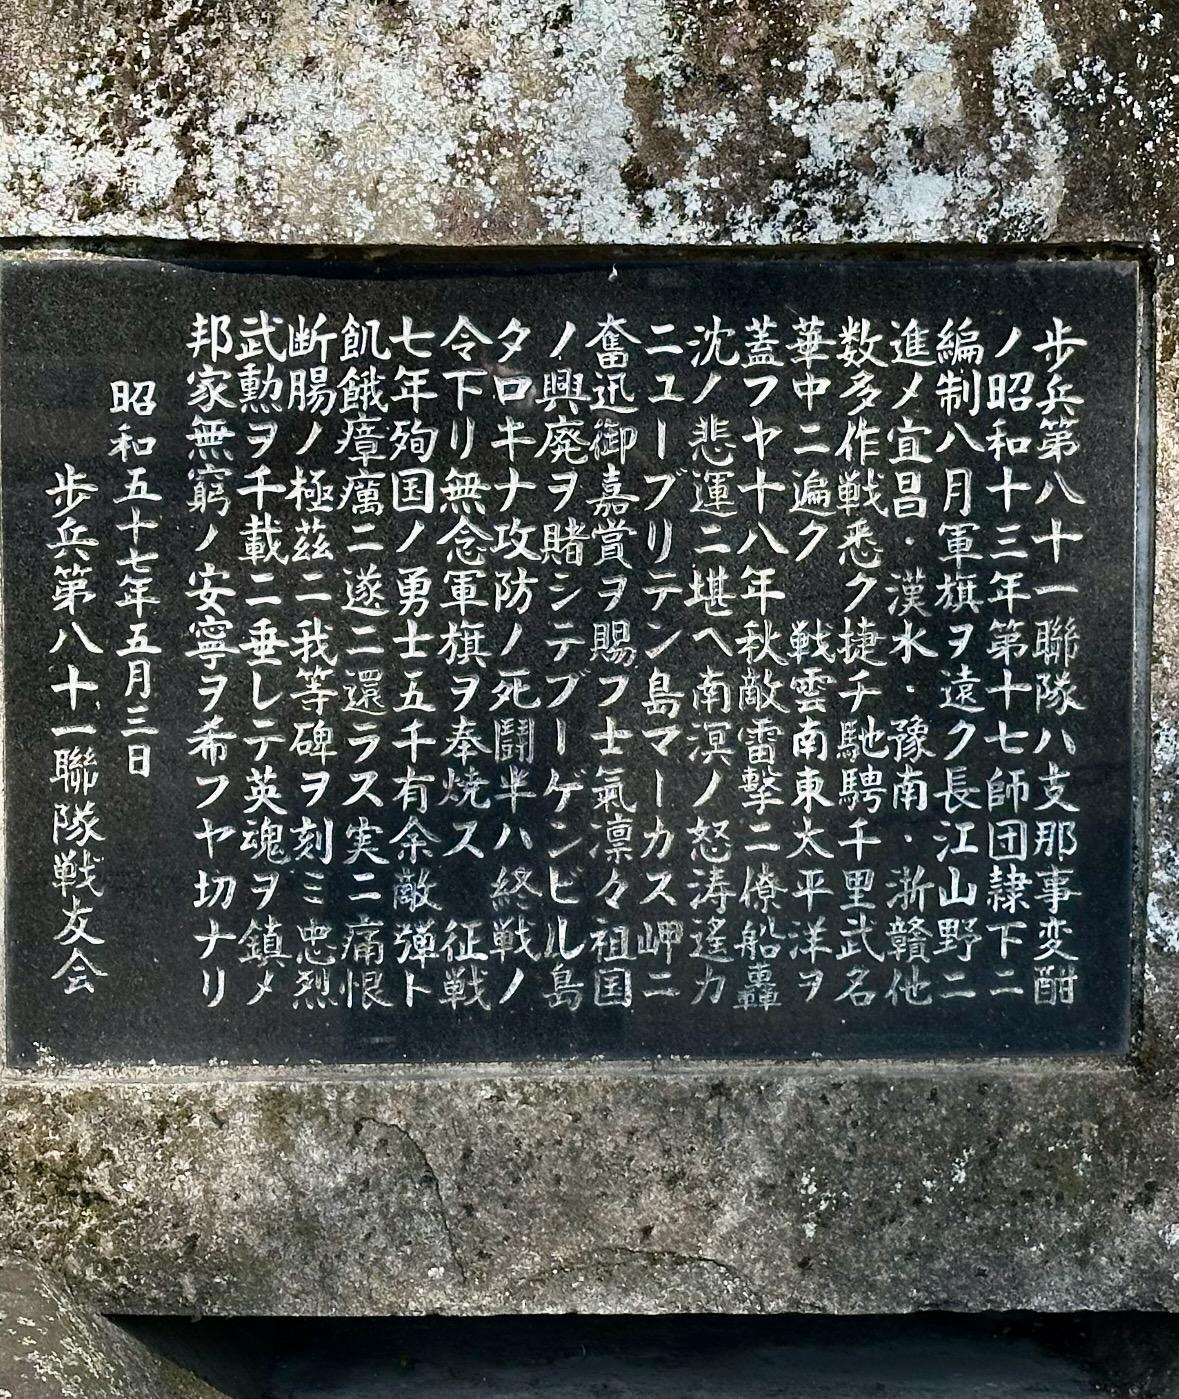 歩兵第八十一聯隊ハ支那事変酣
ノ昭和十三年第十七師団隷下ニ
編制八月軍旗ヲ遠ク長江山野ニ
進メ宜昌・漢水・豫南・浙贛他
数多作戦悉ク捷チ馳騁千里武名
華中ニ遍ク　戦雲南東太平洋ヲ
蓋フヤ十八年秋敵雷撃ニ僚船轟
沈ノ悲運ニ堪ヘ南溟ノ怒涛遙カ
ニューブリテン島マーカス岬ニ
奮迅御嘉賞ヲ賜フ士氣凛々祖国
ノ興廃ヲ賭シテブーゲンビル島
タロキナ攻防ノ死闘半ハ終戦ノ
令下リ無念軍旗ヲ奉焼ス　征戦
七年殉国ノ勇士五千有余敵弾ト
飢餓瘴癘ニ遂ニ還ラス実ニ痛恨
断腸ノ極茲ニ我等碑ヲ刻ミ忠烈
武勲ヲ千載ニ垂レテ英魂ヲ鎮メ
邦家無窮ノ安寧ヲ希フヤ切ナリ
昭和五十七年五月三日
歩兵第八十一聯隊戦友会